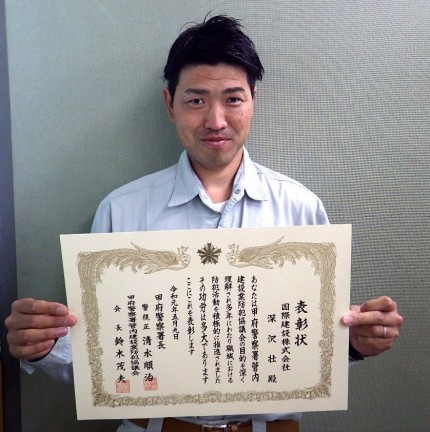 表彰状
国際建設株式会社
深沢壮殿
あなたは甲府警察署管内
建設業防犯協議会の目的を深く
理解され多年にわたり職域における
防犯活動を積極的に推進されました
その功労は多大であります
ここにこれを表彰します
令和元年五月九日
甲府警察署長
警視正 清水順治
甲府警察署管内建設業防犯協議会
会長 鈴木茂夫